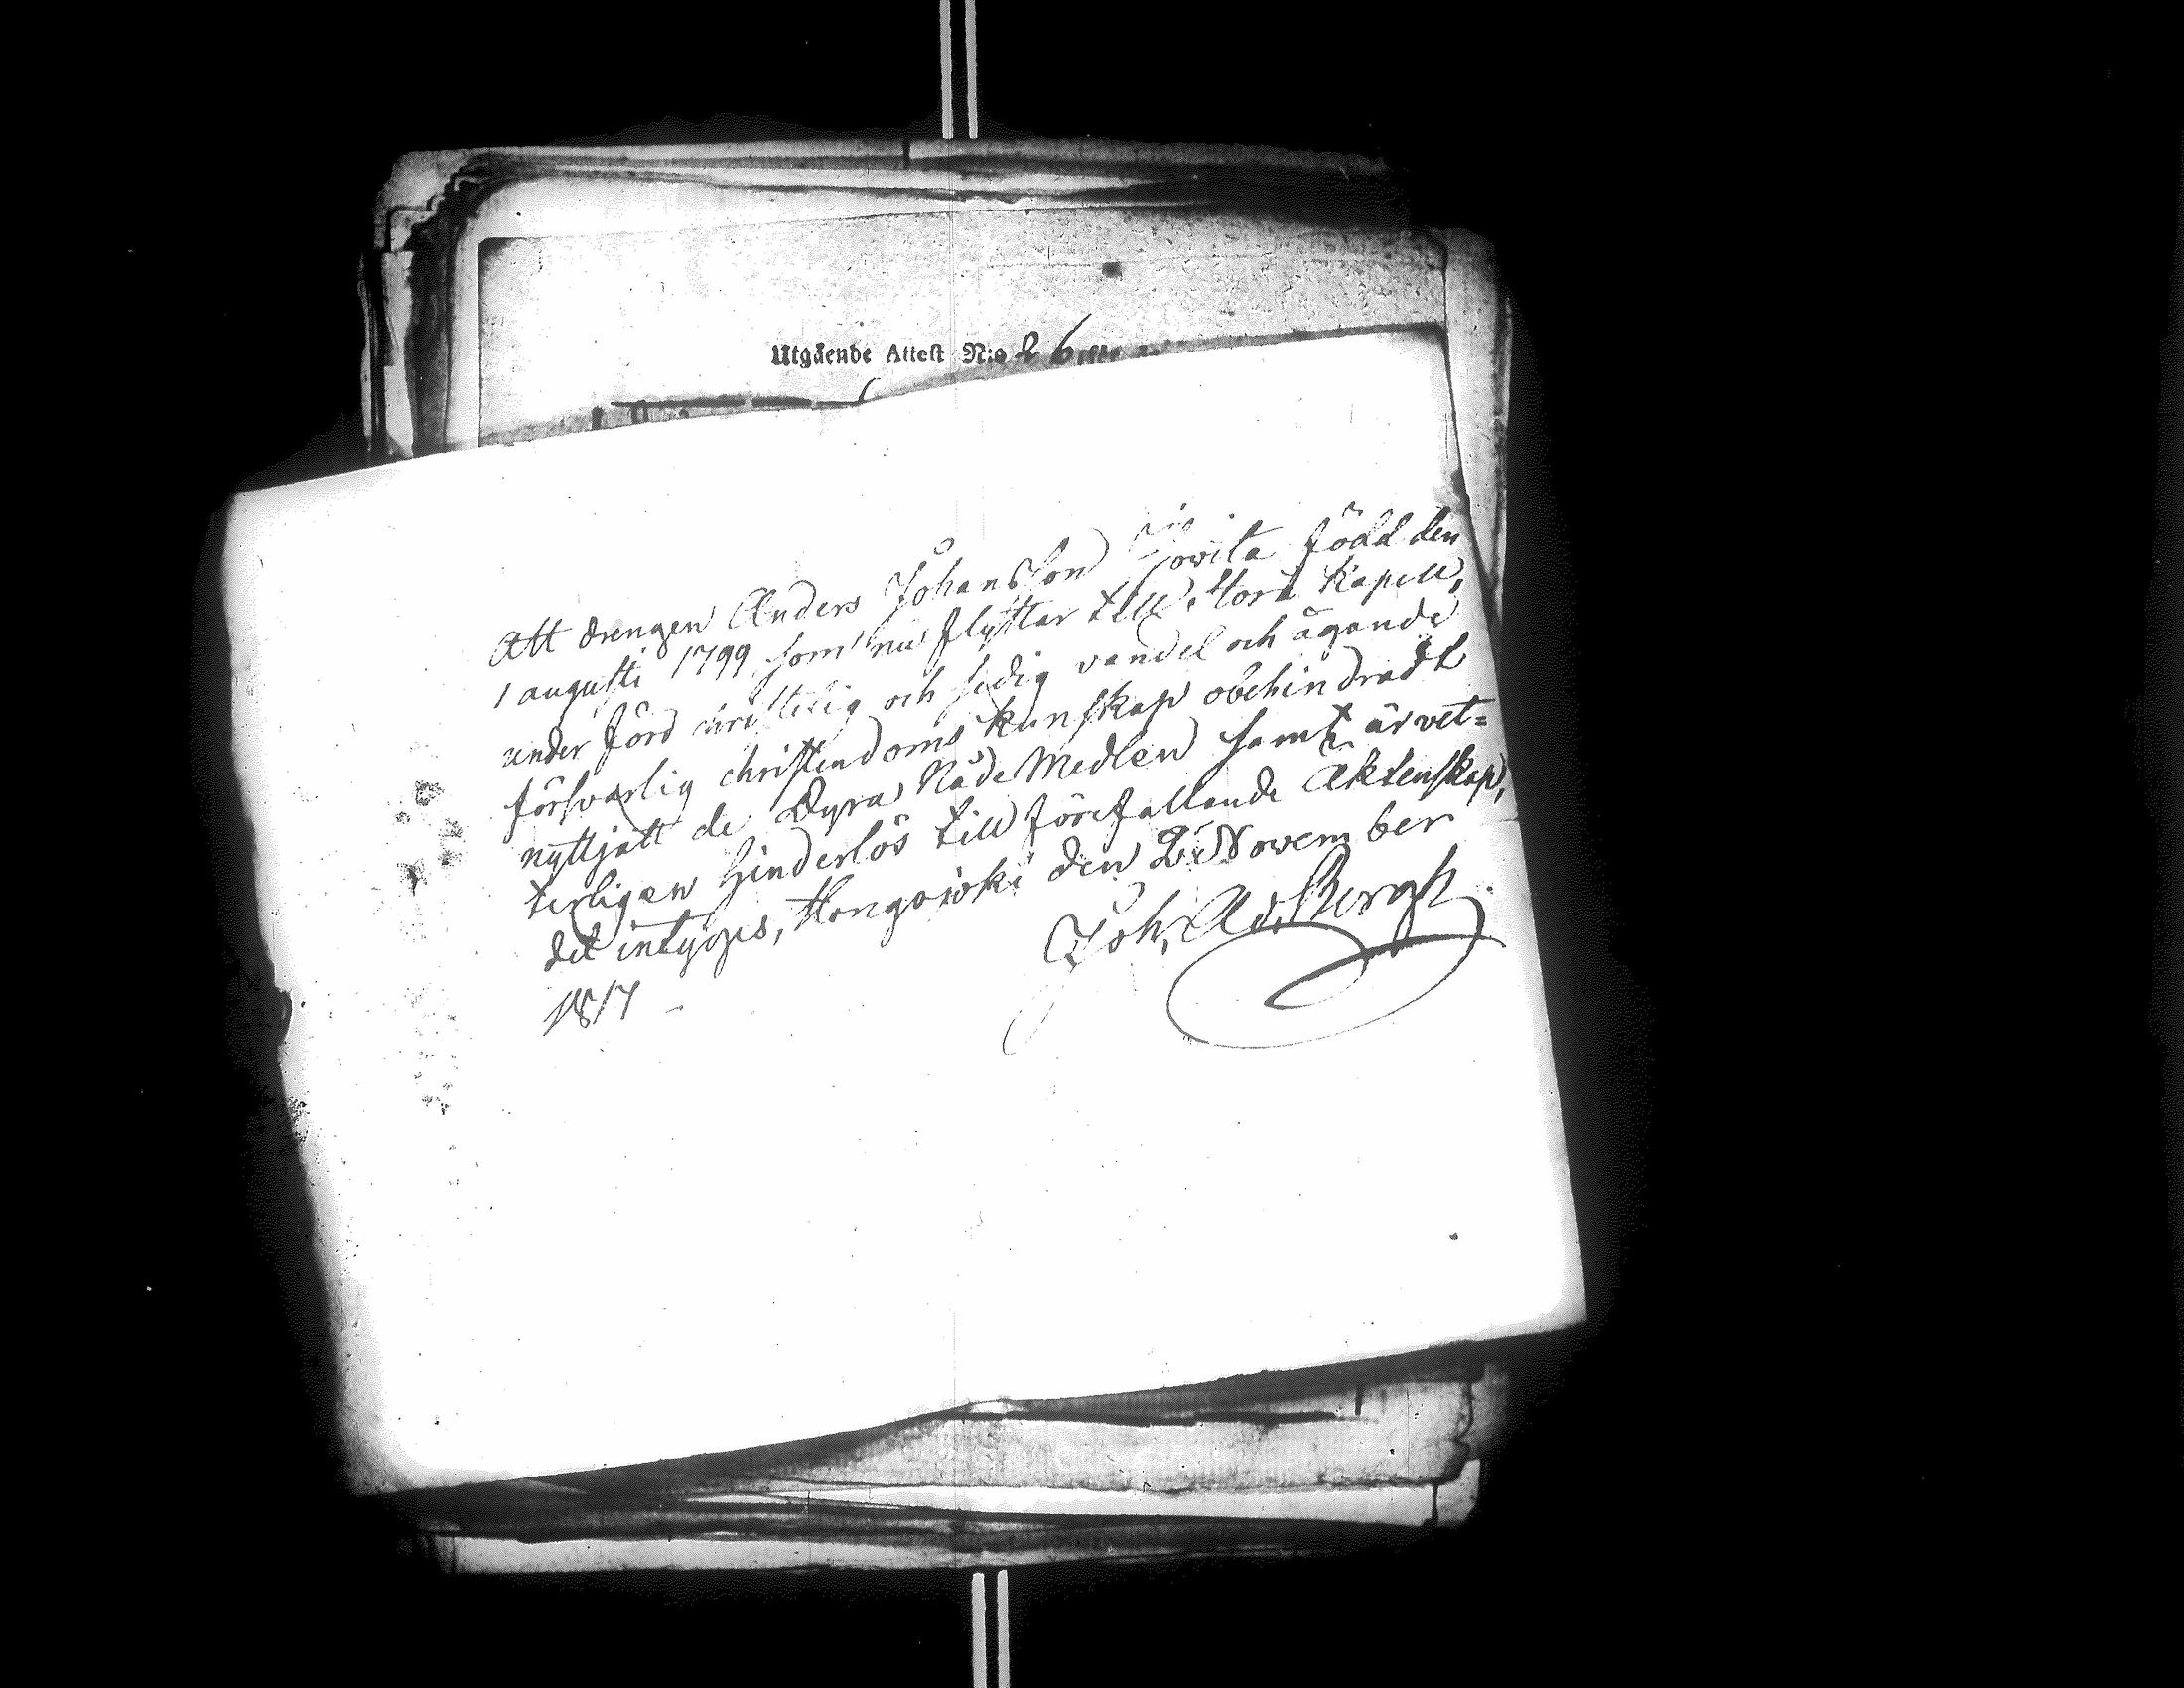 Utgående Attest N:o 26
Att drengen Anders Johansson Jowita född den
1 augusti 1799 som nu flyttar till Storå Kapell,
under förd christelig och sedig vandel och ägande
försvarlig christendoms kunskap obehindradt
nyttjatt de Dyra Nåde Medlen samt är vet=
terligen hinderlös till förefallande Äktenskap,
det intygas, Hongojoki den 2 November
1817 –
Joh, Ad, Bergh.